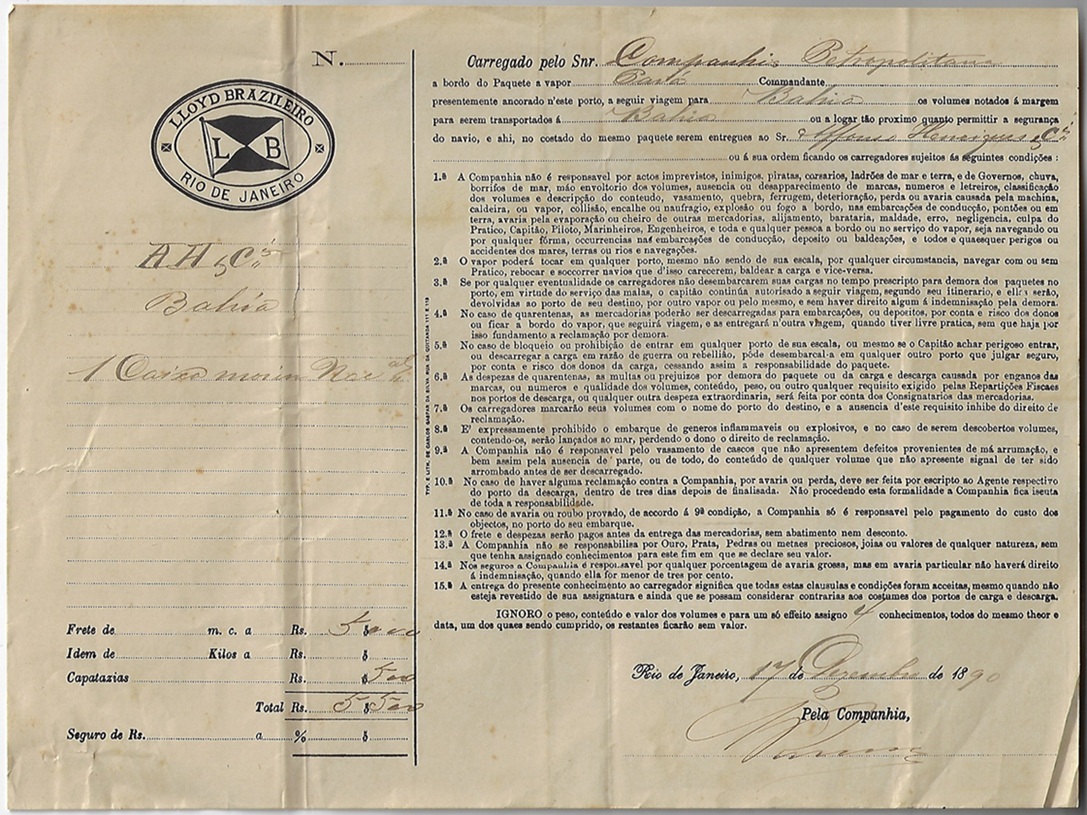 N.
LLOYD BRAZILEIRO
L B
RIO DE JANEIRO
A H & Cª
Bahia
1 Caixa morim Nac
Frete de m. c. a Rs. 5$000
Idem de Kilos a Rs. $
Capatazias Rs. $500
Total Rs. 5$500
Seguro de Rs. a % $
TYP. E LITH. DE CARLOS GASPAR DA SILVA, RUA DA QUITANDA 111 E 113
Carregado pelo Snr. Companhia Petropolitana
a bordo do Paquete a vapor Pará Commandante
presentemente ancorado n'este porto, a seguir viagem para Bahia os volumes notados á margem
para serem transportados á Bahia ou a logar tão proximo quanto permittir a segurança
do navio, e ahi, no costado do mesmo paquete serem entregues ao Sr. Affonso Henriques & Cª
ou á sua ordem ficando os carregadores sujeitos ás seguintes condições :
1.ª A Companhia não é responsavel por actos imprevistos, inimigos, piratas, corsarios, ladrões de mar e terra, e de Governos, chuva,
borrifos de mar, máo envoltorio dos volumes, ausencia ou desapparecimento de marcas, numeros e letreiros, classificação
dos volumes e descripção do conteudo, vasamento, quebra, ferrugem, deterioração, perda ou avaria causada pela machina,
caldeira, ou vapor, collisão, encalhe ou naufragio, explosão ou fogo a bordo, nas embarcações de conducção, pontões ou em
terra, avaria pela evaporação ou cheiro de outras mercadorias, alijamento, barataria, maldade, erro, negligencia, culpa do
Pratico, Capitão, Piloto, Marinheiros, Engenheiros, e toda e qualquer pessoa a bordo ou no serviço do vapor, seja navegando ou
por qualquer fórma, occurrencias nas embarcações de conducção, deposito ou baldeações, e todos e quaesquer perigos ou
accidentes dos mares, terras ou rios e navegações.
2.ª O vapor poderá tocar em qualquer porto, mesmo não sendo de sua escala, por qualquer circumstancia, navegar com ou sem
Pratico, rebocar e soccorrer navios que d'isso carecerem, baldear a carga e vice-versa.
3.ª Se por qualquer eventualidade os carregadores não desembarcarem suas cargas no tempo prescripto para demora dos paquetes no
porto, em virtude do serviço das malas, o capitão continúa autorisado a seguir viagem, segundo seu itinerario, e ellas serão,
devolvidas ao porto de seu destino, por outro vapor ou pelo mesmo, e sem haver direito algum á indemnisação pela demora.
4.ª No caso de quarentenas, as mercadorias poderão ser descarregadas para embarcações, ou depositos, por conta e risco dos donos
ou ficar a bordo do vapor, que seguirá viagem, e as entregará n'outra viagem, quando tiver livre pratica, sem que haja por
isso fundamento a reclamação por demora.
5.ª No caso de bloqueio ou prohibição de entrar em qualquer porto de sua escala, ou mesmo se o Capitão achar perigoso entrar,
ou descarregar a carga em razão de guerra ou rebellião, póde desembarcal-a em qualquer outro porto que julgar seguro,
por conta e risco dos donos da carga, cessando assim a responsabilidade do paquete.
6.ª As despezas de quarentenas, as multas ou prejuizos por demora do paquete ou da carga e descarga causada por enganos das
marcas, ou numeros e qualidade dos volumes, conteúdo, peso, ou outro qualquer requisito exigido pelas Repartições Fiscaes
nos portos de descarga, ou qualquer outra despeza extraordinaria, será feita por conta dos Consignatarios das mercadorias.
7.ª Os carregadores marcarão seus volumes com o nome do porto do destino, e a ausencia d'este requisito inhibe do direito de
reclamação.
8.ª E' expressamente prohibido o embarque de generos inflammaveis ou explosivos, e no caso de serem descobertos volumes,
contendo-os, serão lançados ao mar, perdendo o dono o direito de reclamação.
9.ª A Companhia não é responsavel pelo vasamento de cascos que não apresentem defeitos provenientes de má arrumação, e
bem assim pela ausencia de parte, ou de todo, do conteúdo de qualquer volume que não apresente signal de ter sido
arrombado antes de ser descarregado.
10.ª No caso de haver alguma reclamação contra a Companhia, por avaria ou perda, deve ser feita por escripto ao Agente respectivo
do porto da descarga, dentro de tres dias depois de finalisada. Não procedendo esta formalidade a Companhia fica isenta
de toda a responsabilidade.
11.ª No caso de avaria ou roubo provado, de accordo á 9ª condição, a Companhia só é responsavel pelo pagamento do custo dos
objectos, no porto do seu embarque.
12.ª O frete e despezas serão pagos antes da entrega das mercadorias, sem abatimento nem desconto.
13.ª A Companhia não se responsabilisa por Ouro, Prata, Pedras ou metaes preciosos, joias ou valores de qualquer natureza, sem
que tenha assignado conhecimentos para este fim em que se declare seu valor.
14.ª Nos seguros a Companhia é responsavel por qualquer porcentagem de avaria grossa, mas em avaria particular não haverá direito
á indemnisação, quando ella for menor de tres por cento.
15.ª A entrega do presente conhecimento ao carregador significa que todas estas clausulas e condições foram acceitas, mesmo quando não
esteja revestido de sua assignatura e ainda que se possam considerar contrarias aos costumes dos portos de carga e descarga.
IGNORO o peso, conteúdo e valor dos volumes e para um só effeito assigno 4 conhecimentos, todos do mesmo theor e
data, um dos quaes sendo cumprido, os restantes ficarão sem valor.
Rio de Janeiro, 17 de Dezembro de 1890
Pela Companhia,